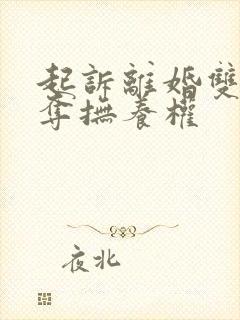 起訴離婚雙
奪撫養權
夜北